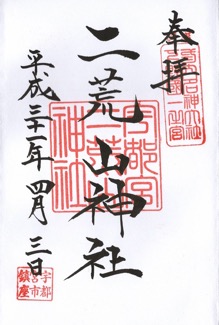 奉拝
二荒山神社
平成三十一年四月三日
宇都宮
二荒山
神社
宇都
宮市
鎮座